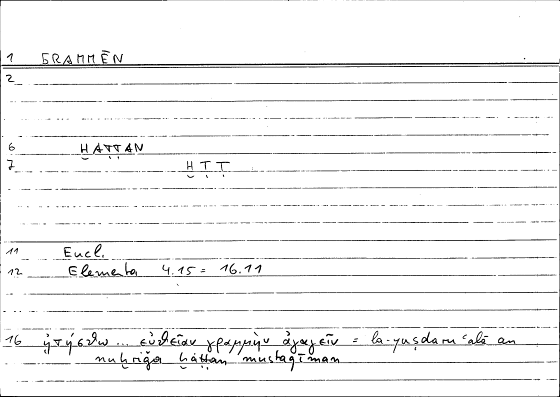 1 GRAMMĒN
2
6 ḪAṬṬAN
7 Ḫ Ṭ Ṭ
11 Eucl.
12 Elementa 4.15 = 16.11
16 ᾐτήσθω ... εὐθεῖαν γραμμὴν ἀγαγεῖν = la-yuṣdaru ʿalā an
nuḫriǧa ḫaṭṭan mustaqīman